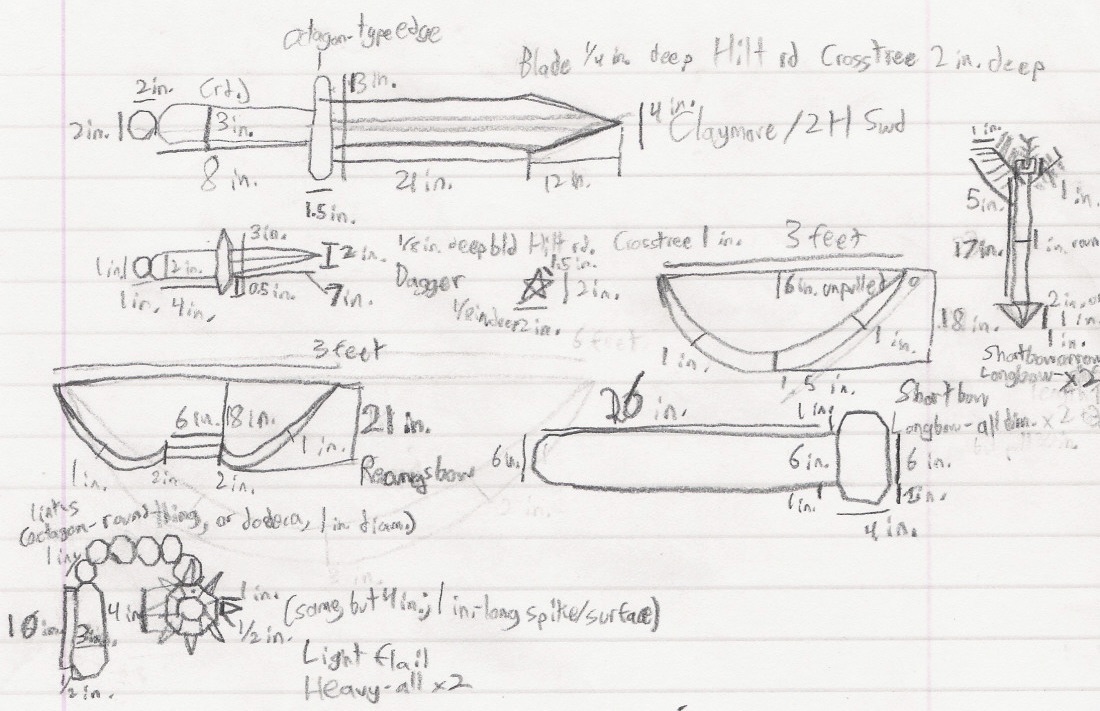 octagon-type edge
Blade 1/4 in. deep Hilt rd Crosstree 2 in. deep
2in. (rd.) 13 in.
2in. 3in. 4 in.
Claymore / 2H Swd
8 in. 21 in. 12 in.
1.5 in.
1 in.
5in. 1 in.
17in. 1 in. roun
2 in.
1 in.
1 in.
Shortbow arrow
Longbow - x2
3in. 2 in.
1in. 2in.
1in. 4in. 0.5in. 7in.
1/8 in. deep bld Hilt rd. Crosstree 1 in.
Dagger
1.5in.
2in.
1/8 in deep 2 in.
3 feet
6 in. unpulled
18 in.
1 in. 1 in.
1.5 in.
Shortbow
Longbow - all dim. x 2
6 feet
3 feet
6 in. 18 in. 21 in.
1 in. 1 in.
2in 2in.
Reamysbow
26 in. 1 in.
6in. 6 in. 6 in.
1in. 1in.
4 in.
links
(octagon-round thing, or dodeca, 1 in diam.)
1in
10in 3in. 4in 1 in. (same, but 4 in.; 1 in.-long spike/surface)
1/2 in.
2in.
Light flail
Heavy - all x2